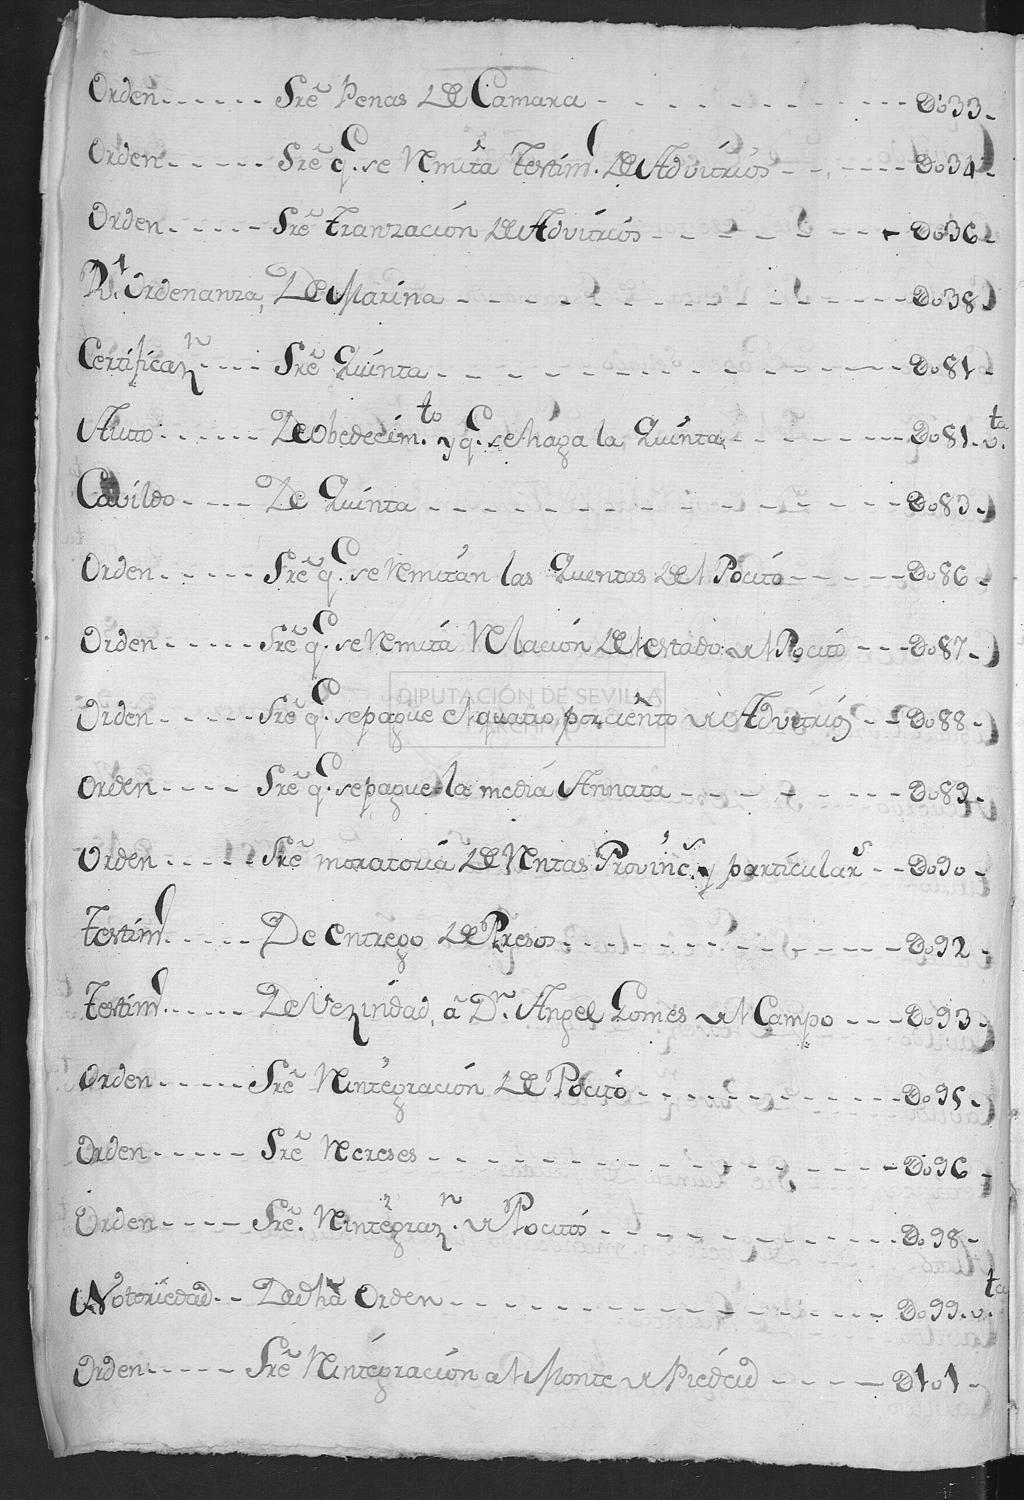 Orden...... Sre Penas de Camara - - - - - - - - Do 33-
Orden - - - - - Sre q.e se Remita testim.o de Advitrios - - - - - - Do 34-
Orden - - - - - Sre tranzacion de Advitrios - - - - - - - Do 36-
R.l Ordenanza, De Marina - - - - - - - - - - Do 38
Certificaz.n - - - Sre Quinta - - - - - - - - - - - Do 81-
Auto - - - - - De Obedecim.to y q.e se haga la Quinta - - - - - Do 81.v.ta
Cavildo - - - - De Quinta - - - - - - - - - - - Do 83-
Orden - - - - - Sre q.e se Remitan las Quentas del Pocito - - - - Do 86-
Orden - - - - - Sre q.e se Remita Relacion del estado del Pocito - - - Do 87-
Orden - - - - - Sre q.e se pague el quatro por ciento de Advitrios - - Do 88-
Orden - - - - - Sre q.e se pague la media Annata - - - - - - - Do 89-
Orden - - - - - Sre moratoria de Rentas Provinc.s y particular.s - - Do 90-
Testim.o - - - - De entrego de Presos - - - - - - - - Do 92-
Testim.o - - - - De Vezindad, a D.n Angel Gomes del Campo - - - Do 93-
Orden - - - - - Sre Reintegracion de Pocito - - - - - - - Do 95-
Orden - - - - - Sre Recreses - - - - - - - - - - - Do 96-
Orden - - - - Sre. Reintegraz.n de Pocitos - - - - - - - - Do 98-
Notoriedad - - De dha Orden - - - - - - - - - - Do 99.v.ta
Orden - - - - - Sre Reintegracion al Monte de Piedad - - - - D 101-
DIPUTACIÓN DE SEVILLA
ARCHIVO